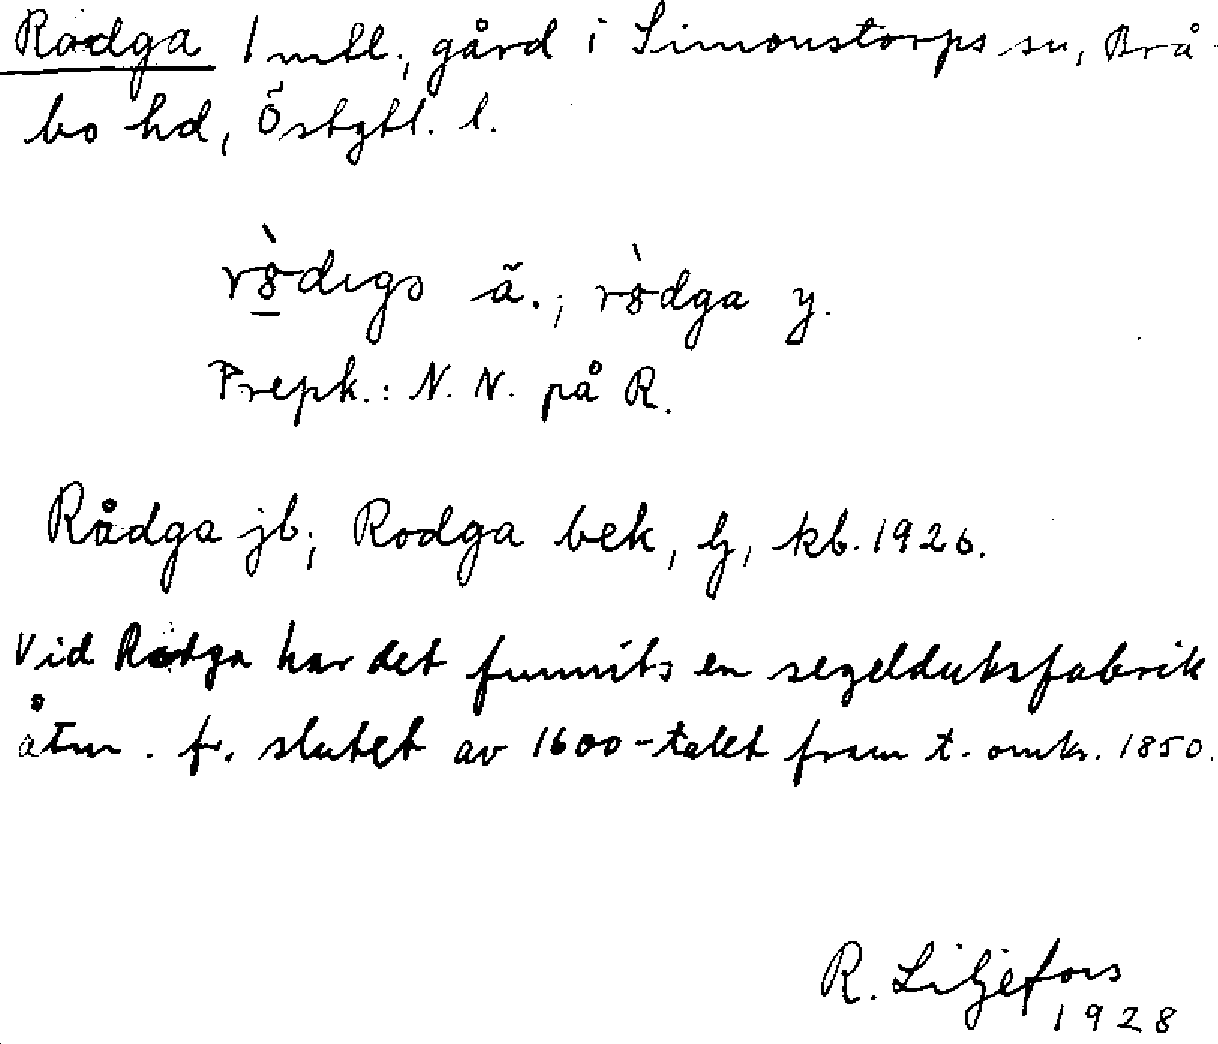 Rodga 1 mtl., gård i Simonstorps sn, Brå-
bo hd, Östgtl. l.
ä.; y.
Prepk.: N. N. på R.
Rådga jb; Rodga bek, kb. 1926.
Vid har det funnits en segelduksfabrik
åtm. fr. slutet av 1600-talet fram t. omkr. 1850.
R. Liljefors
1928